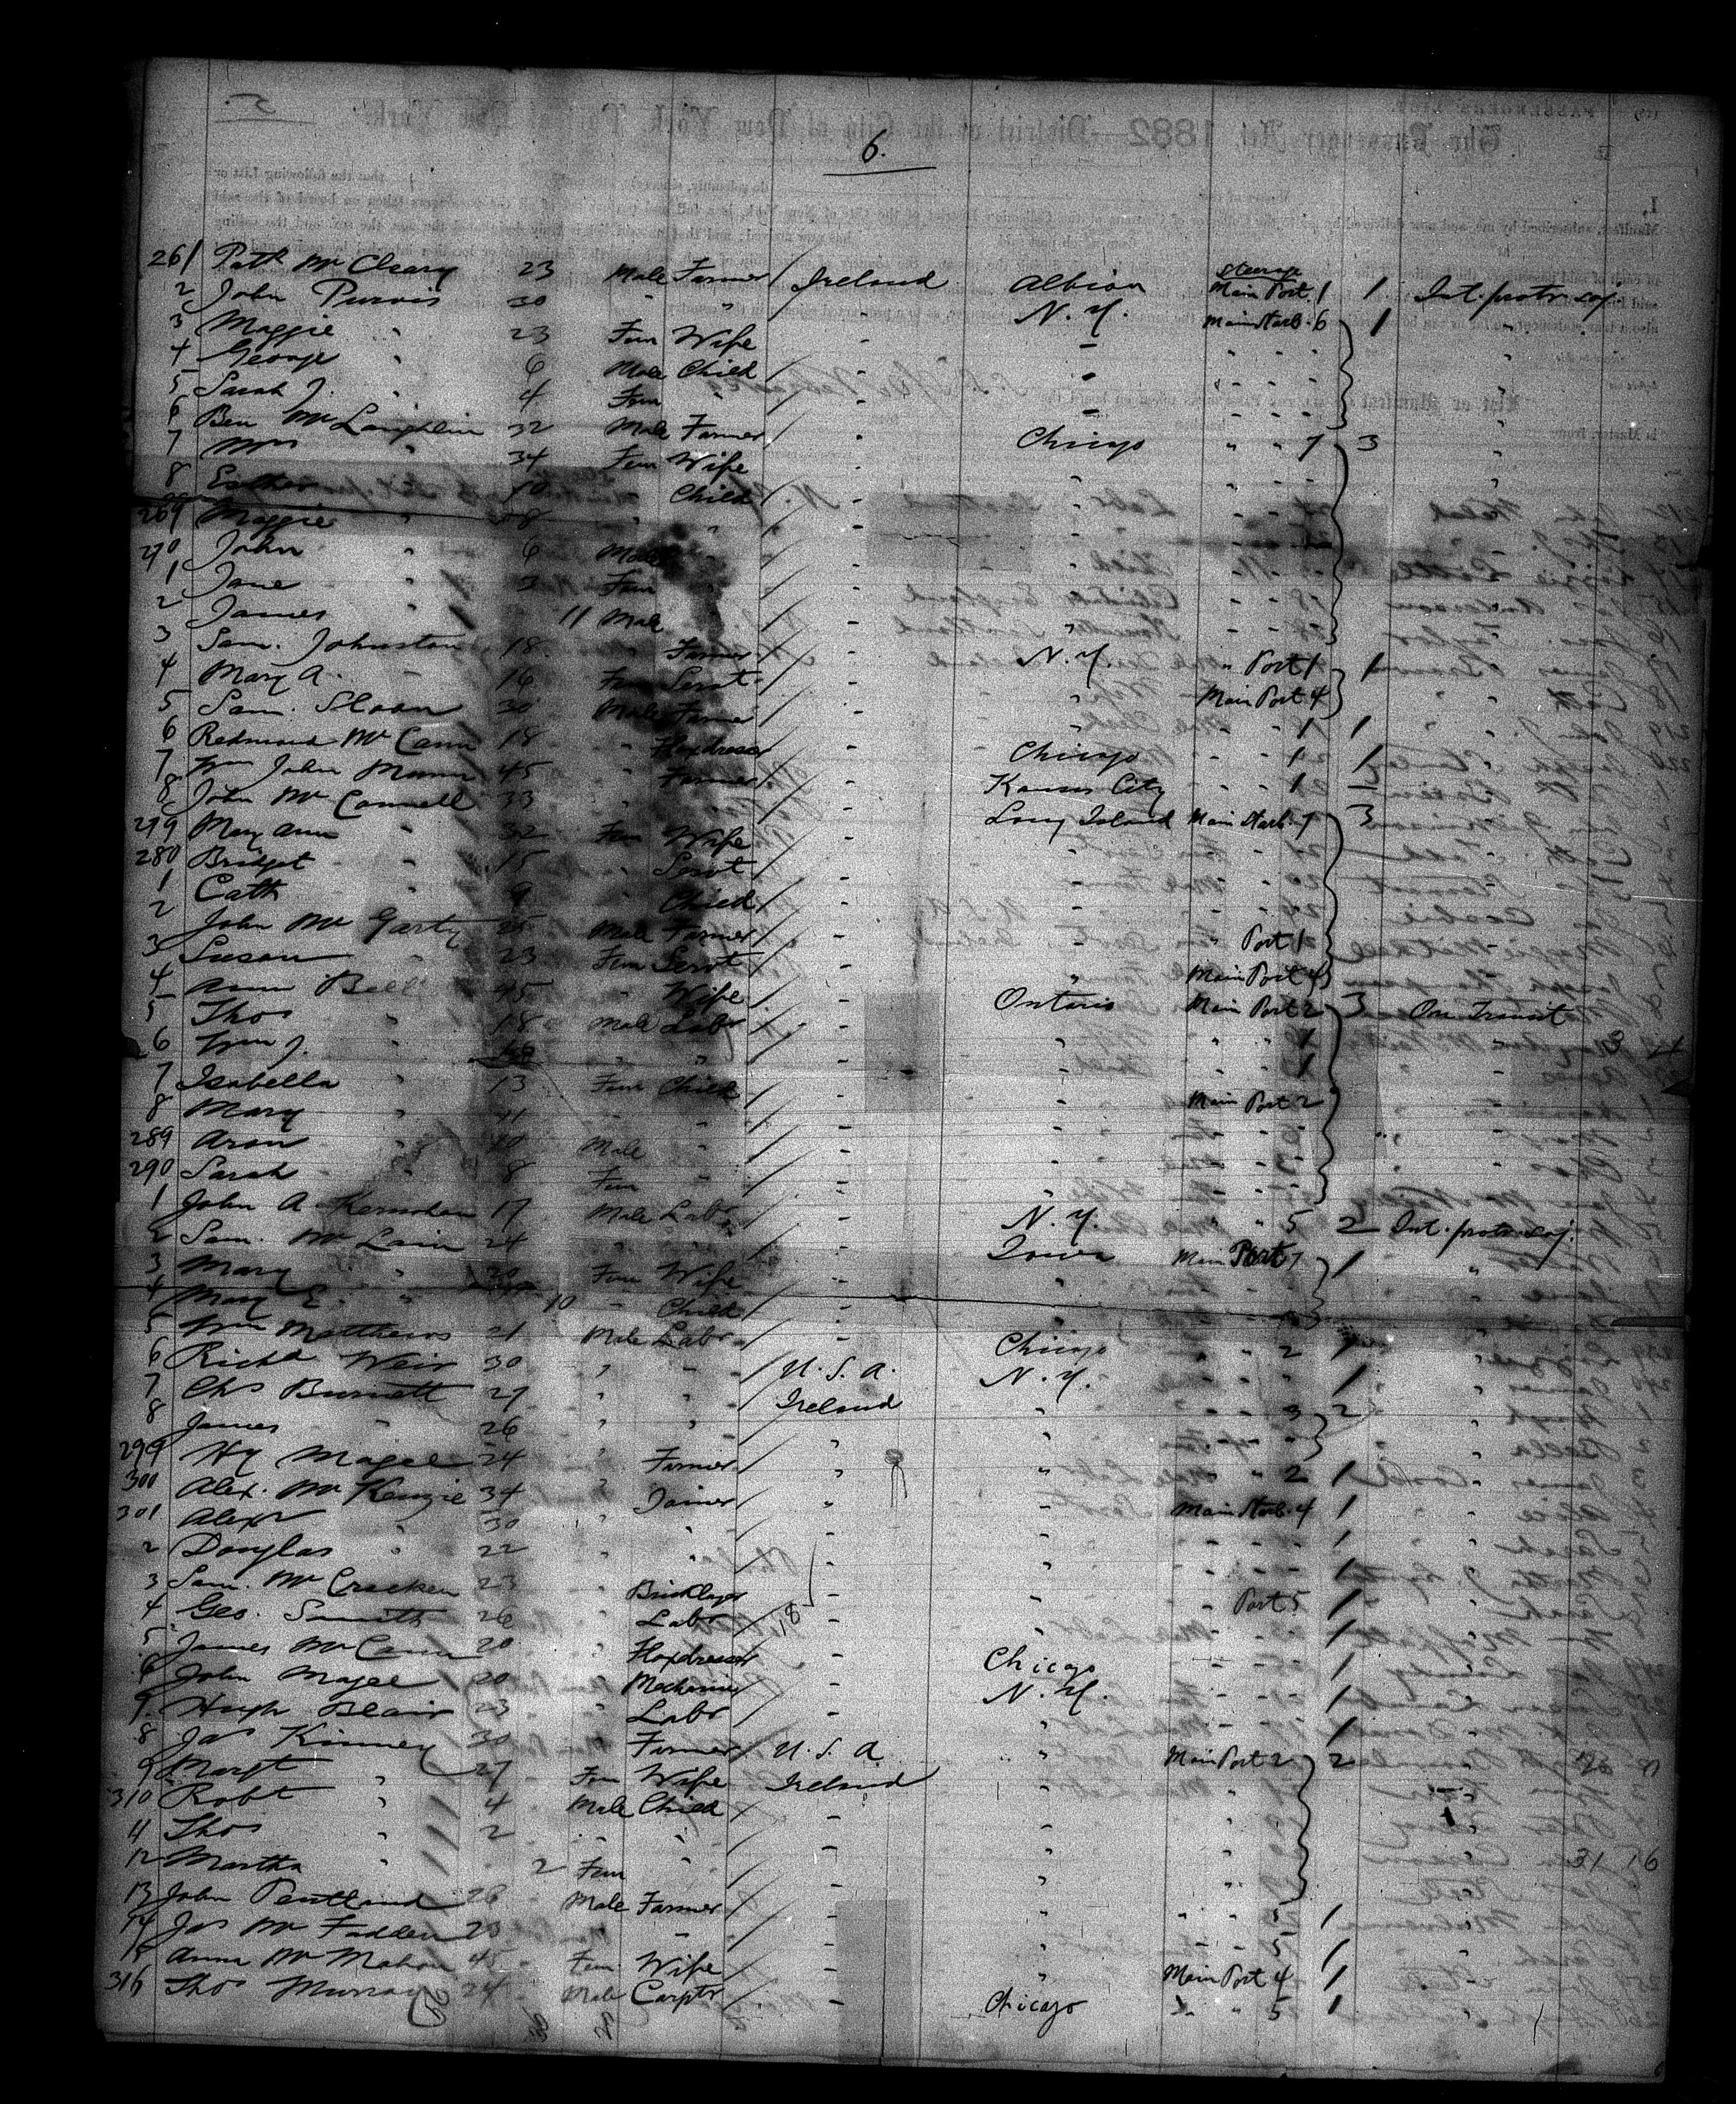 6.
Steerage
261 Patk McCleary 23 Male Farmer / Ireland Albion Main Port 1 1 Int. protr. soj.
2 John Purvis 30 " " / N. Y. Main Starb. 6 1 "
3 Maggie " 23 Fem Wife / - - " - - "
4 George " 6 Male Child / - - " - - "
5 Sarah J. " 4 Fem " / - - " - - "
6 Ben McLaughlin 32 Male Farmer / - Chicago " " 7 3 "
7 Mrs " 34 Fem Wife / - " - - - "
8 Esther " 10 " Child / - " - - -
269 Maggie " 8 " " / - " - - -
270 John " 6 Male / - " - - -
1 Jane " 3 Fem " / - " - - -
2 James " 11 Male / - " - - -
3 Sam. Johnston 18 Farmer / - N. Y. " Port 1 1
4 Mary A. " 16 Fem Servt / - " Main Port 4
5 Sam. Sloan 30 Male Farmer / - " - - 1 1
6 Redmond McCann 18 " Flaxdresser / - Chicago - - 1 1
7 Wm John Munn 45 " Farmer / - Kansas City - - 1 -
8 John McConnell 33 " / - Long Island Main Starb. 7 3
279 Mary Ann " 32 Fem Wife / - "
280 Bridget " 15 " Servt / - "
1 Cath " 9 " Child / - "
2 John McGarty 25 Male Farmer / - " " Port 1
3 Susan " 23 Fem Servt / - " Main Port 4
4 Ann Bell 45 " Wife / - Ontario Main Port 2 3 On Transit
5 Thos " 18 Male Labr / - " " " 1 "
6 Wm J. " " " / - " " 1
7 Isabella " 13 Fem Child / - " Main Port 2
8 Mary " 11 " " / - " - -
289 Aron " 10 Male " / - " - -
290 Sarah " 8 Fem " / - " - -
1 John A Kernohan 17 Male Labr / - N. Y. " " 5 2 Int. protr. soj.
2 Sam. McLain 24 " " / - Iowa Main Port 7 1 "
3 Mary " 20 Fem Wife / - "
4 Mary E. " 10 " Child / - "
5 Wm Matthews 21 Male Labr / - Chicago " " 2 "
6 Richd Weir 30 " " / U. S. A. N. Y. 1 "
7 Chs Burnett 27 " " / Ireland " - - 3 2 "
8 James " 26 " " / " " - - "
299 Hy Magee 24 " Farmer / " " " " 2 1 "
300 Alex. McKenzie 34 " Joiner / " - Main Starb. 4 1 "
301 Alexr " 30 " " / - " - - 1 "
2 Douglas " 22 " " / - " - - 1 "
3 Sam. McCracken 23 " Bricklayer / - " - Port 5 1 "
4 Geo. Smith 26 " Labr / 18 - " - - - 1 "
5 James McCann 20 " Flaxdresser / - Chicago - - - 1 "
6 John Magee 20 " Mechanic / - N. Y. - - - 1 "
7 Hugh Blair 23 " Labr / - " - - - 1 "
8 Jas Kinney 30 " Farmer / U. S. A " Main Port 2 2 "
9 Margt " 27 Fem Wife / Ireland " - -
310 Robt " 4 Male Child / - " - - "
11 Thos " 2 " " / - " - - "
12 Martha " 2 Fem / - " - - "
13 John Pentland 28 Male Farmer / - " - - 5 1 "
14 Jas McFadden 23 " " / - " - - 5 1 "
15 Anna McMahon 45 Fem Wife / - " Main Port 4 1 "
316 Thos Murray 24 Male Carptr / - Chicago " " 5 1 "